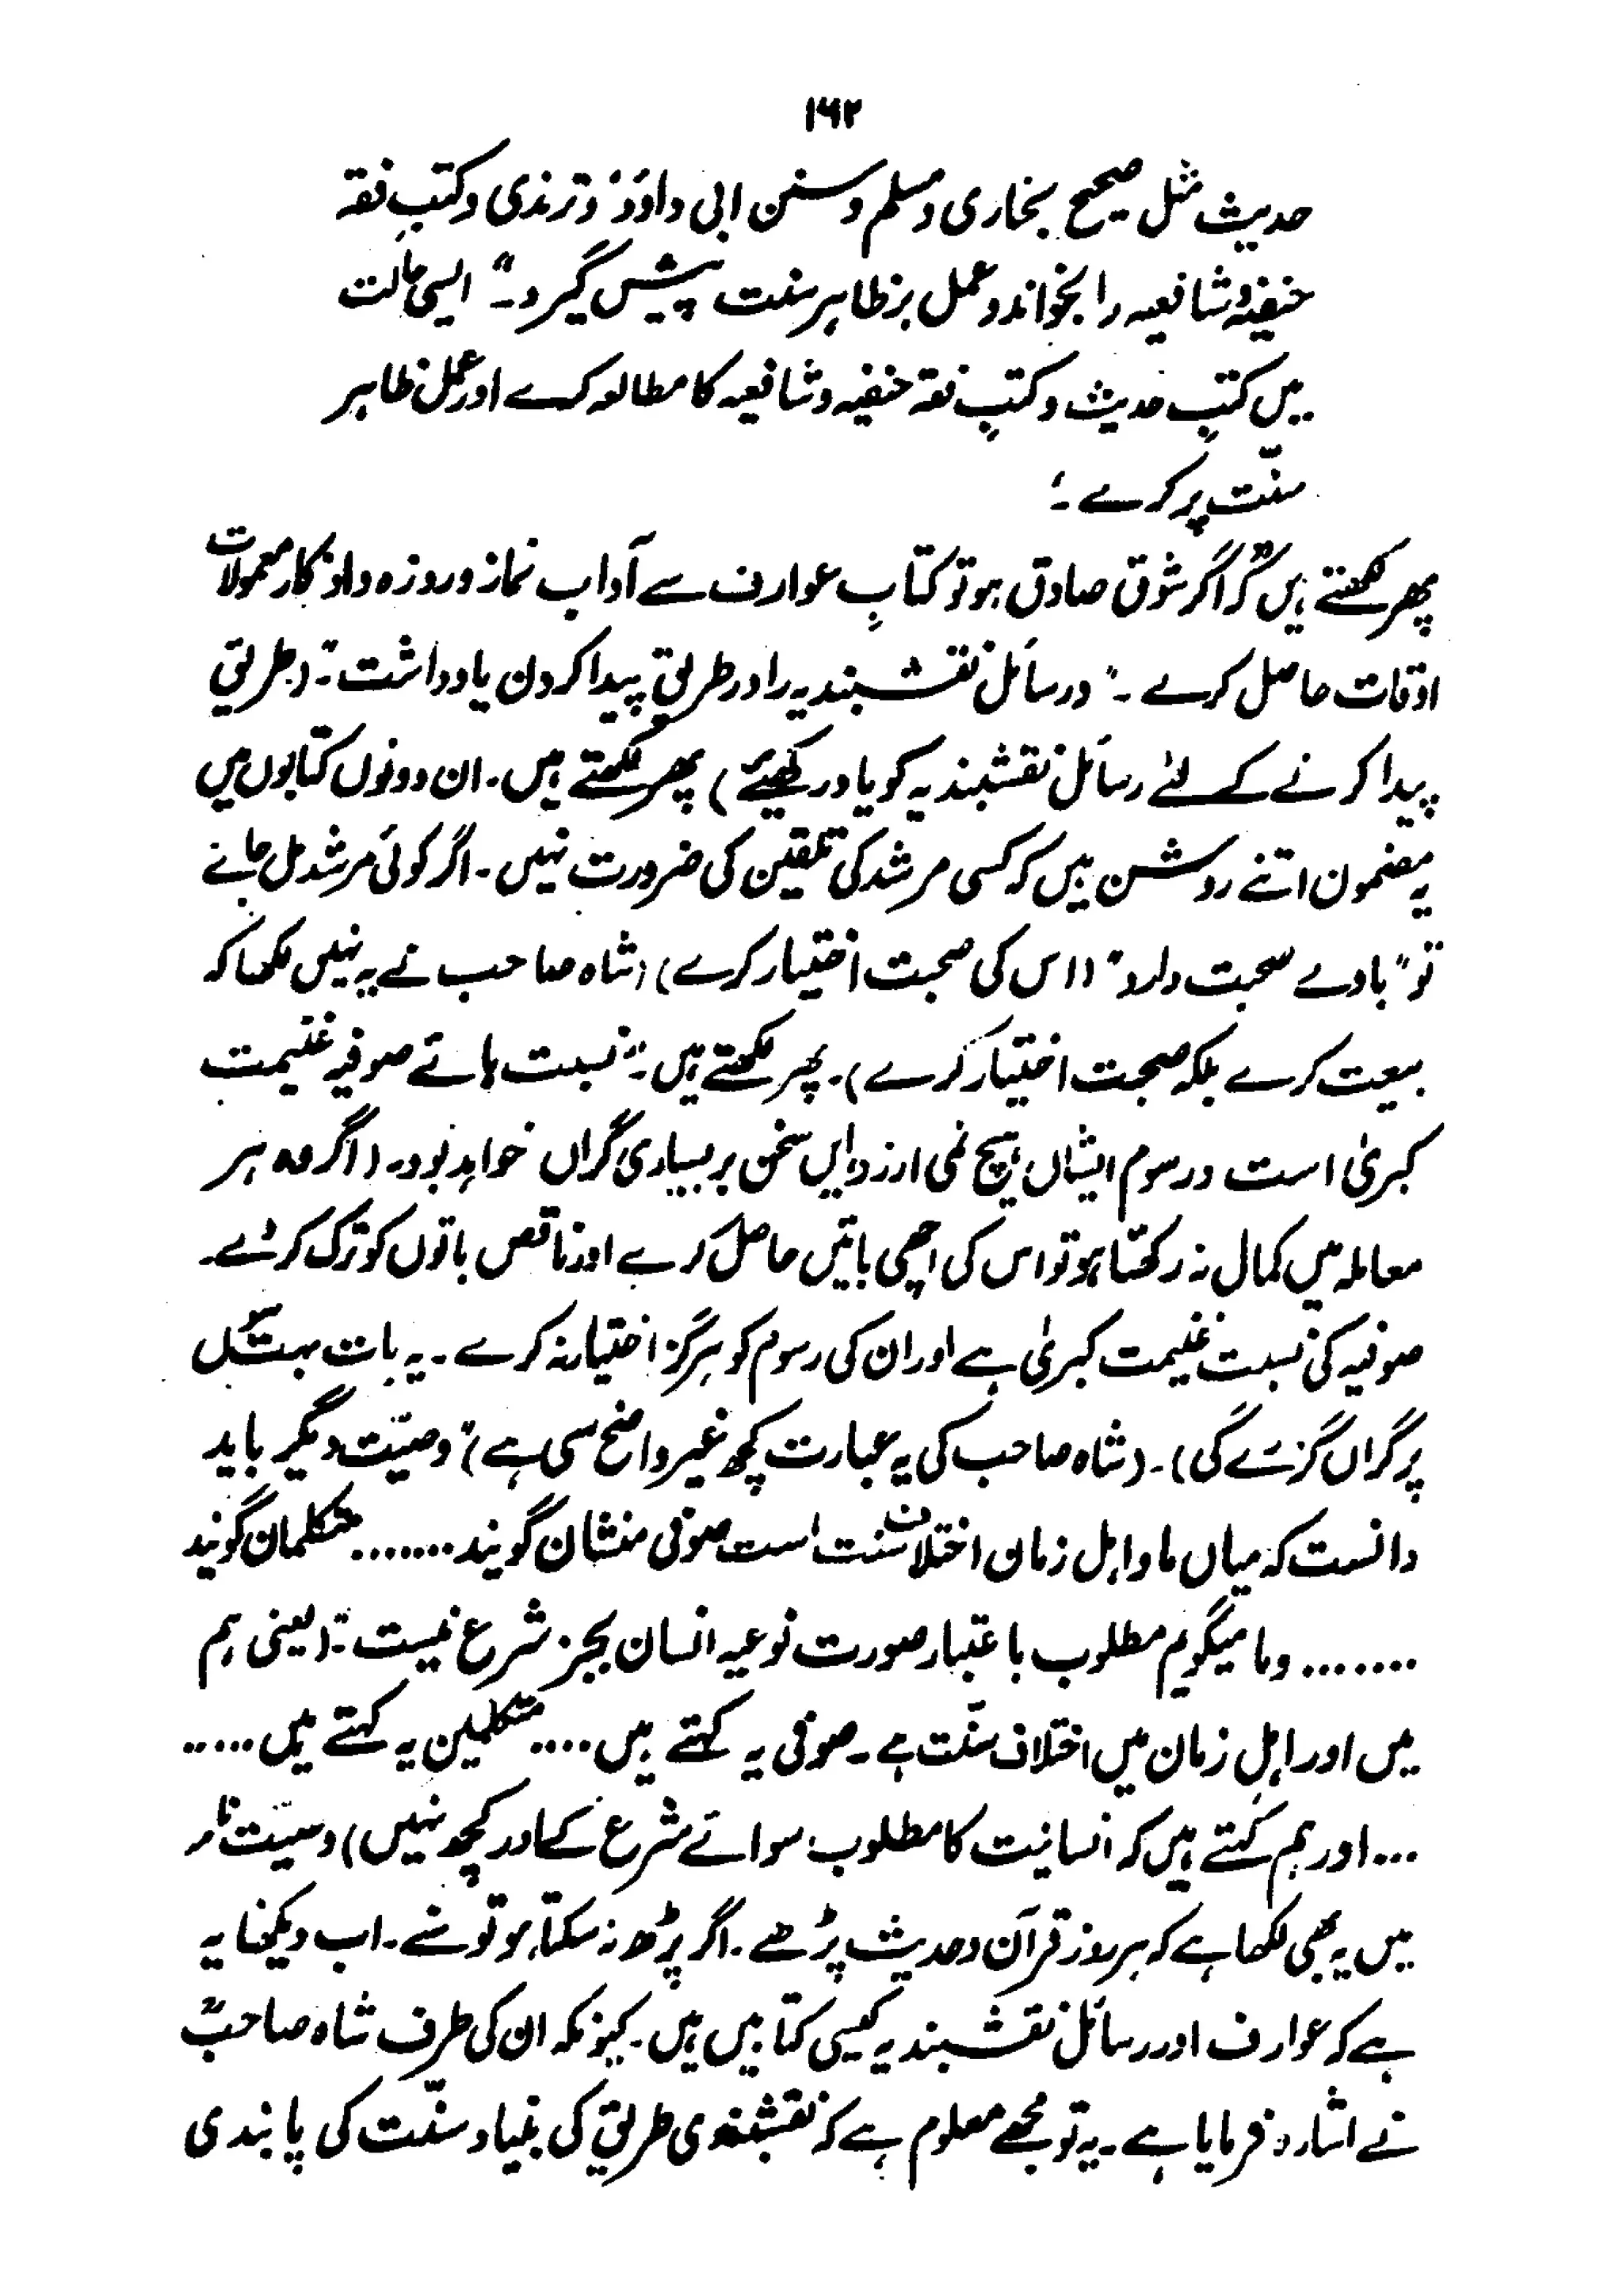 ۱۶۲
حدیث مثل صحیح بخاری و مسلم و سنن ابی داؤد و ترمذی و کتبِ فقہ
حنفیہ و شافعیہ را بخواند و عمل بر ظاہر سنت پیش گیرد۔" ایسی حالت
میں کتبِ حدیث و کتبِ فقہ حنفیہ و شافعیہ کا مطالعہ کرے اور عمل ظاہر
سنّت پر کرے۔
پھر لکھتے ہیں کہ اگر شوق صادق ہو تو کتابِ عوارف سے آداب نماز و روزہ و اذکار معمولات
اوقات حاصل کرے۔ "و رسائل نقشبندیہ را در طریق پیدا کردن یادداشت۔" (طریق
پیدا کرنے کے لئے رسائل نقشبندیہ کو یاد رکھیئے) پھر لکھتے ہیں۔ ان دونوں کتابوں میں
یہ مضمون اتنے روشن ہیں کہ کسی مرشد کی تلقین کی ضرورت نہیں۔ اگر کوئی مرشد مل جائے
تو "باوے صحبت دارد" (اس کی صحبت اختیار کرے) (شاہ صاحب نے یہ نہیں لکھا کہ
بیعت کرے بلکہ صحبت اختیار کرے)۔ پھر لکھتے ہیں۔ "نسبت ہائے صوفیہ غنیمت
کبریٰ است و رسوم ایشاں ہیچ نمی ارزد و ایں سخن بر بسیاری گراں خواہد بود۔ (اگر وہ ہر
معاملہ میں کمال نہ رکھتا ہو تو اس کی اچھی باتیں حاصل کرے اور ناقص باتوں کو ترک کر دے۔
صوفیہ کی نسبت غنیمت کبریٰ ہے اور ان کی رسوم کو ہرگز اختیار نہ کرے۔ یہ بات بہت سوں
پر گراں گزرے گی)۔ (شاہ صاحب کی یہ عبارت کچھ غیر واضح سی ہے) "وصیّت دیگر باید
دانست کہ میاں ما و اہل زمان اختلاف سنت است صوفی منشان گویند ....... متکلمان گویند
....... و ما میگویم مطلوب باعتبار صورت نوعیہ انسان بجز شرع نیست۔" (یعنی ہم
میں اور اہلِ زمان میں اختلاف سنّت ہے۔ صوفی یہ کہتے ہیں .... متکلمین یہ کہتے ہیں .....
... اور ہم کہتے ہیں کہ انسانیت کا مطلوب سوائے شرع کے اور کچھ نہیں) وصیّت نامہ
میں یہ بھی لکھا ہے کہ ہر روز قرآن و حدیث پڑھے۔ اگر پڑھ نہ سکتا ہو تو سنے۔ اب دیکھنا یہ
ہے کہ عوارف اور رسائل نقشبندیہ کیسی کتابیں ہیں۔ کیونکہ ان کی طرف شاہ صاحبؒ
نے اشارہ فرمایا ہے۔ یہ تو مجھے معلوم ہے کہ نقشبندی طریق کی بنیاد سنّت کی پابندی